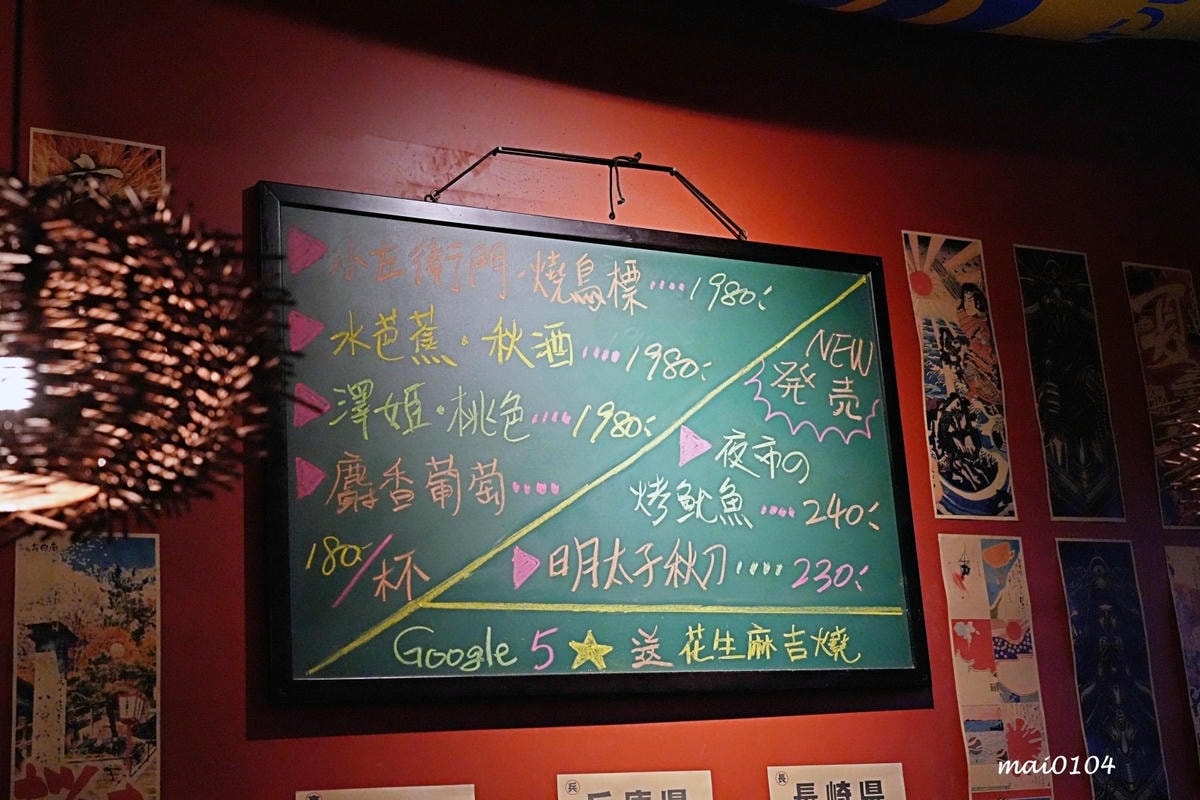 小左衛門·燒鳥標····1980:
水芭蕉·秋酒····1980:
澤姫·桃色····1980:
麝香葡萄····
180/杯
NEW
発売
夜市の
烤魷魚····240:
明太子秋刀····230:
Google 5★送花生麻吉燒
兵庫県
長崎県
mai0104